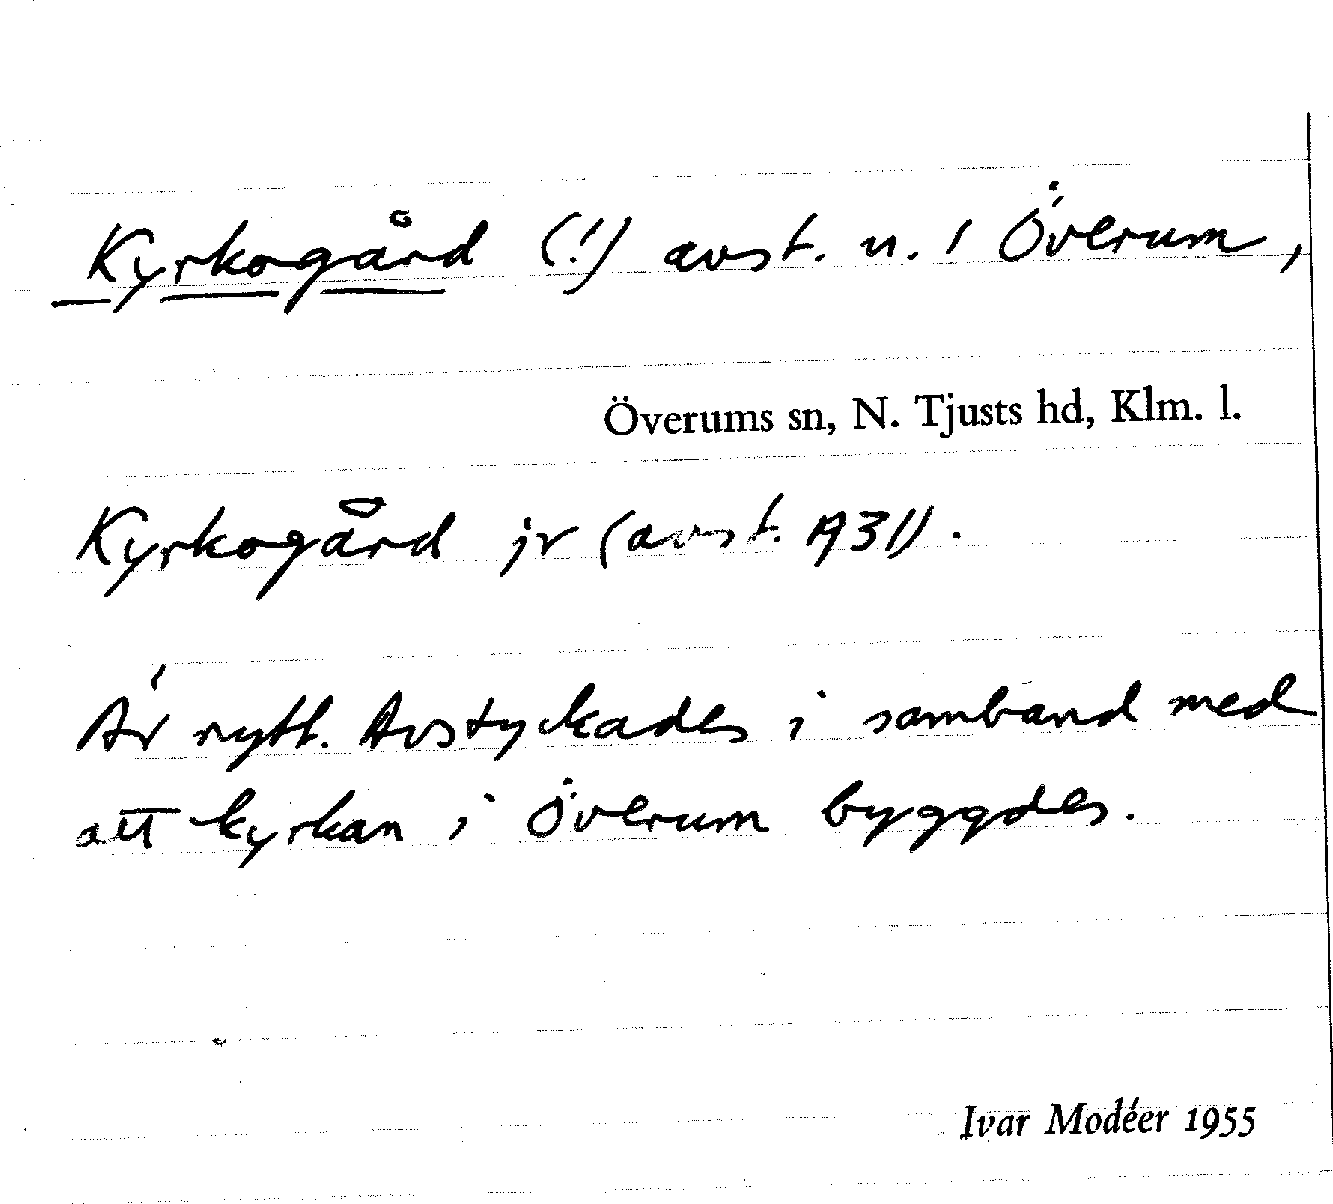 Kyrkogård (!) avst. u. 1 Överum,
Överums sn, N. Tjusts hd, Klm. l.
Kyrkogård jr (avst. 1931).
Är nytt. Avstyckades i samband med
att kyrkan i Överum byggdes.
Ivar Modéer 1955